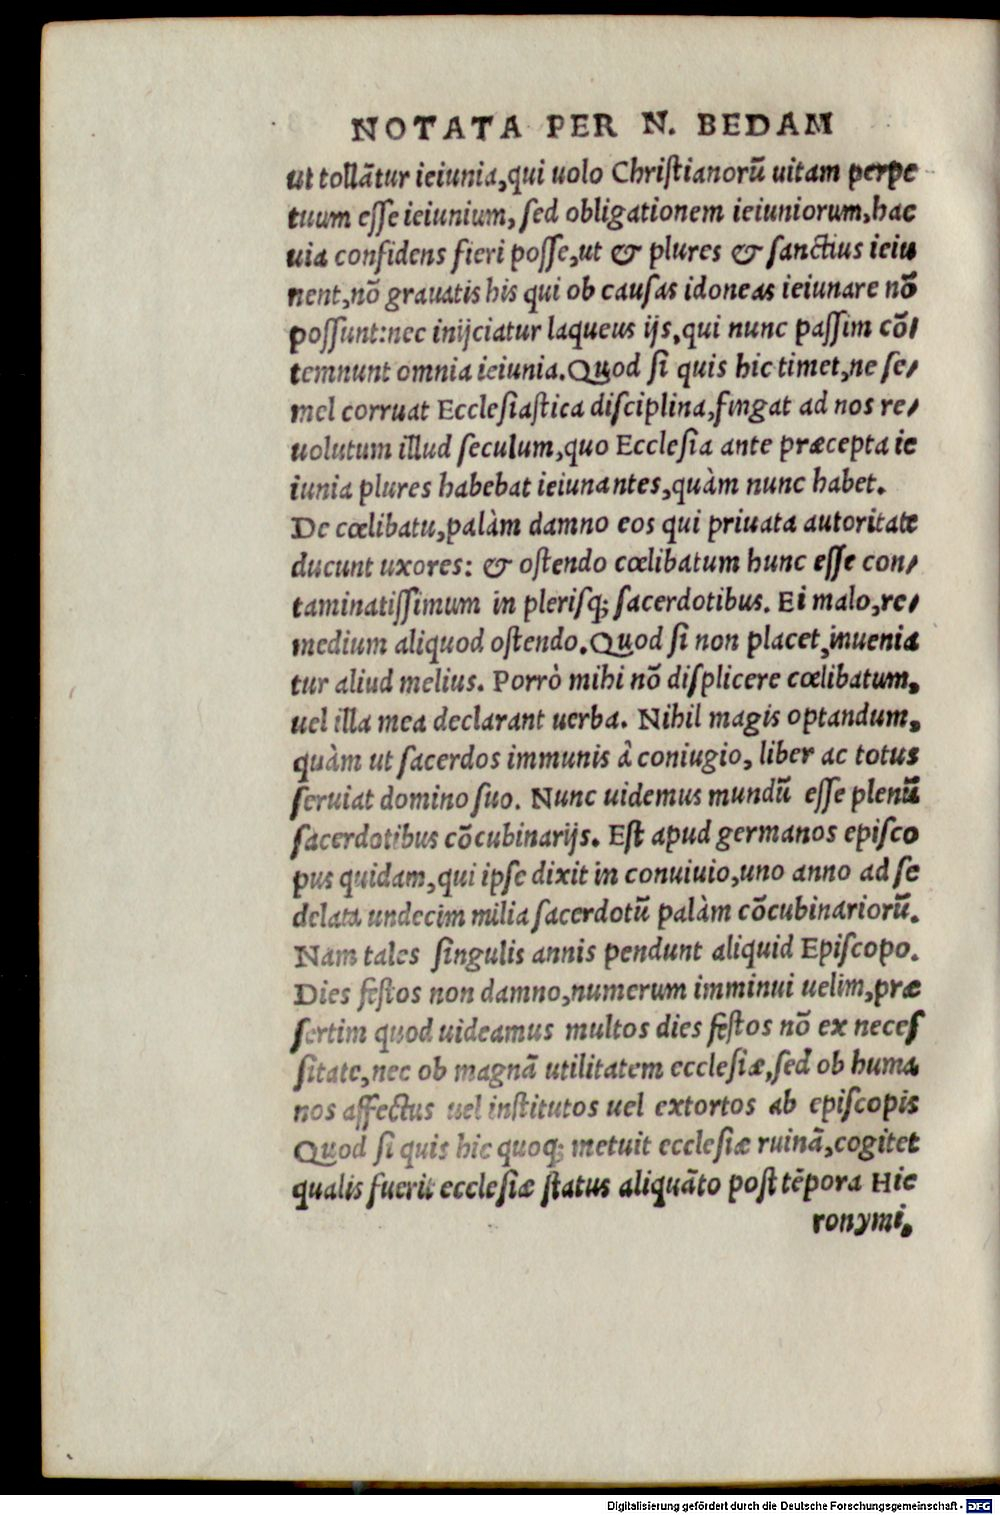 NOTATA PER N. BEDAM
ut tollātur ieiunia,qui uolo Chriſtianorū uitam perpe
tuum eſſe ieiunium, ſed obligationem ieiuniorum,hac
uia confidens fieri poſſe,ut & plures & ſanctius ieiu
nent,nō grauatis his qui ob cauſas idoneas ieiunare nō
poſſunt:nec inijciatur laqueus ijs,qui nunc paſſim cō/
temnunt omnia ieiunia.Quod ſi quis hic timet,ne ſe/
mel corruat Eccleſiaſtica diſciplina,fingat ad nos re/
uolutum illud ſeculum,quo Eccleſia ante præcepta ie
iunia plures habebat ieiunantes,quàm nunc habet.
De cœlibatu,palàm damno eos qui priuata autoritate
ducunt uxores: & oſtendo cœlibatum hunc eſſe con/
taminatiſſimum in pleriſq; ſacerdotibus. Ei malo,re/
medium aliquod oſtendo.Quod ſi non placet,inuenia
tur aliud melius. Porrò mihi nō diſplicere cœlibatum,
uel illa mea declarant uerba. Nihil magis optandum,
quàm ut ſacerdos immunis à coniugio, liber ac totus
ſeruiat domino ſuo. Nunc uidemus mundū eſſe plenū
ſacerdotibus cōcubinarijs. Eſt apud germanos epiſco
pus quidam,qui ipſe dixit in conuiuio,uno anno ad ſe
delata undecim milia ſacerdotū palàm cōcubinariorū.
Nam tales ſingulis annis pendunt aliquid Epiſcopo.
Dies feſtos non damno,numerum imminui uelim,præ
ſertim quod uideamus multos dies feſtos nō ex neceſ
ſitate,nec ob magnā utilitatem eccleſiæ,ſed ob huma
nos affectus uel inſtitutos uel extortos ab epiſcopis
Quod ſi quis hic quoq; metuit eccleſiæ ruinā,cogitet
qualis fuerit eccleſiæ ſtatus aliquāto poſt tēpora Hie
ronymi.
Digitalisierung gefördert durch die Deutsche Forschungsgemeinschaft - DFG